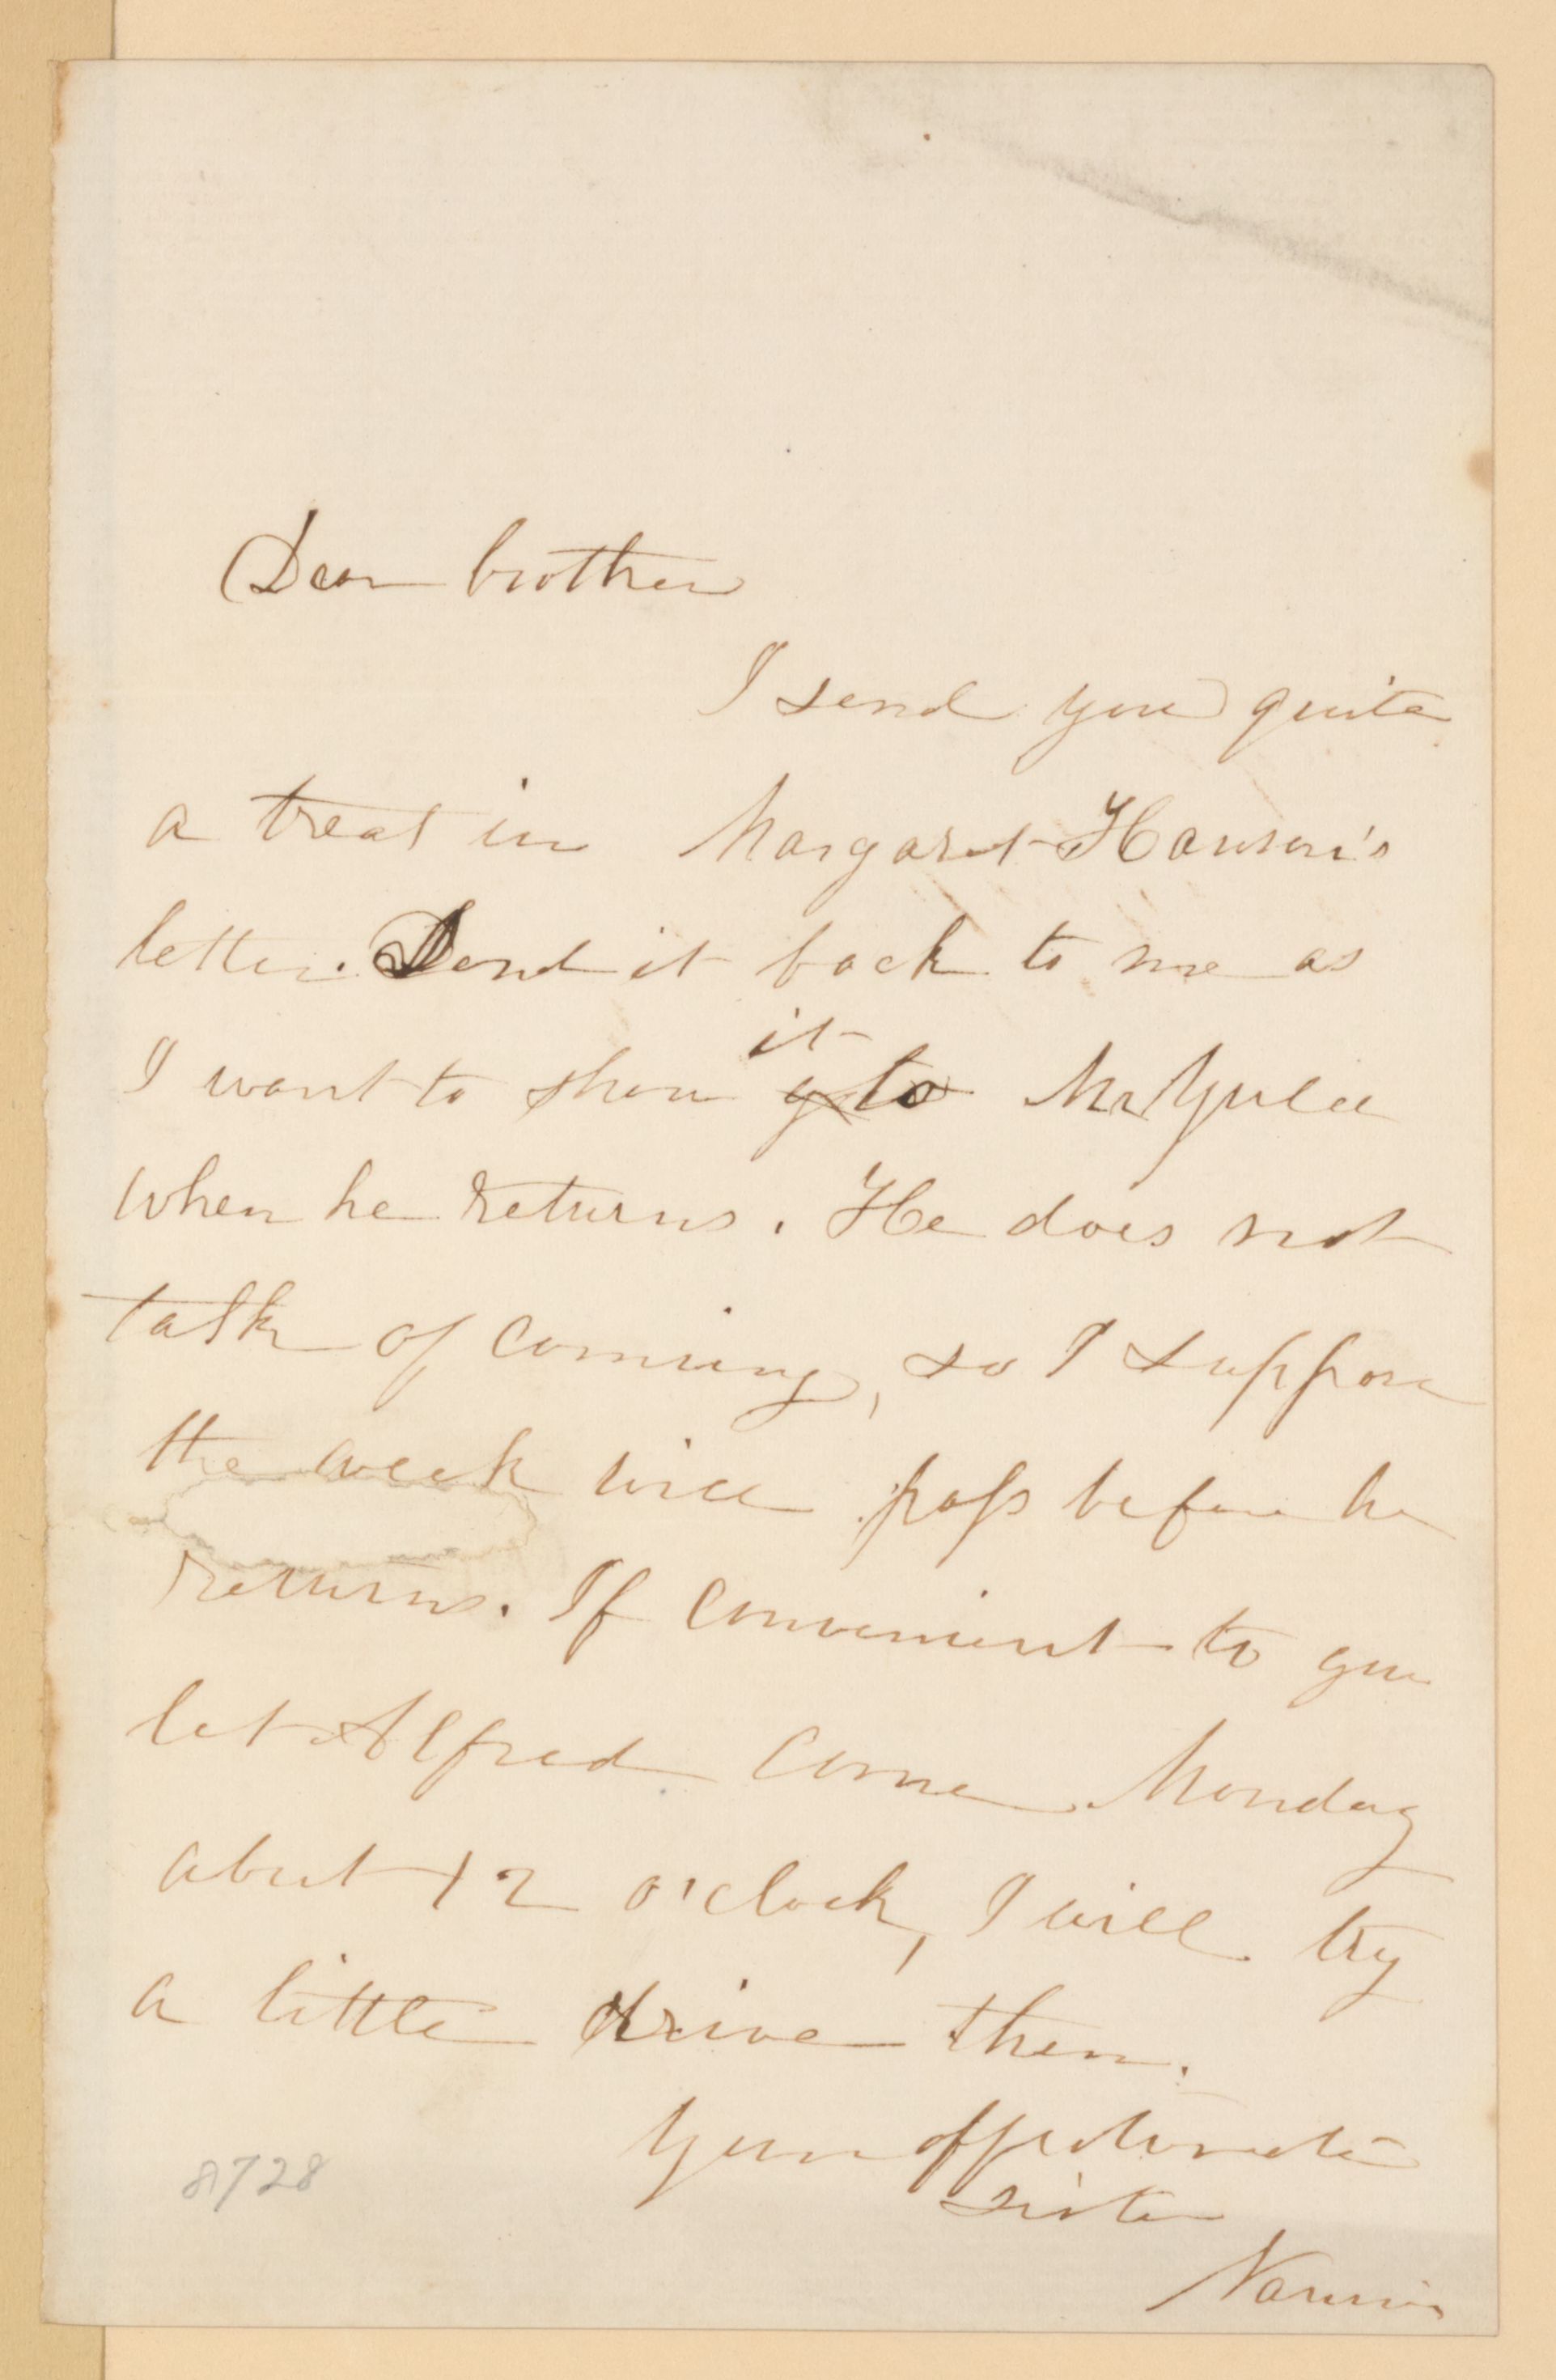 Dear brother
I send you quite
a treat in Margaret Hanson's
letter. Send it back to me as
it
I want to show to Mr Yulee
when he returns. He does not
talk of coming, so I suppose
the week will pass before he
returns. If convenient to you
let Alfred come Monday
about 12 o'clock, I will try
a little drive then.
Your affectionate
sister
Nannie
8728